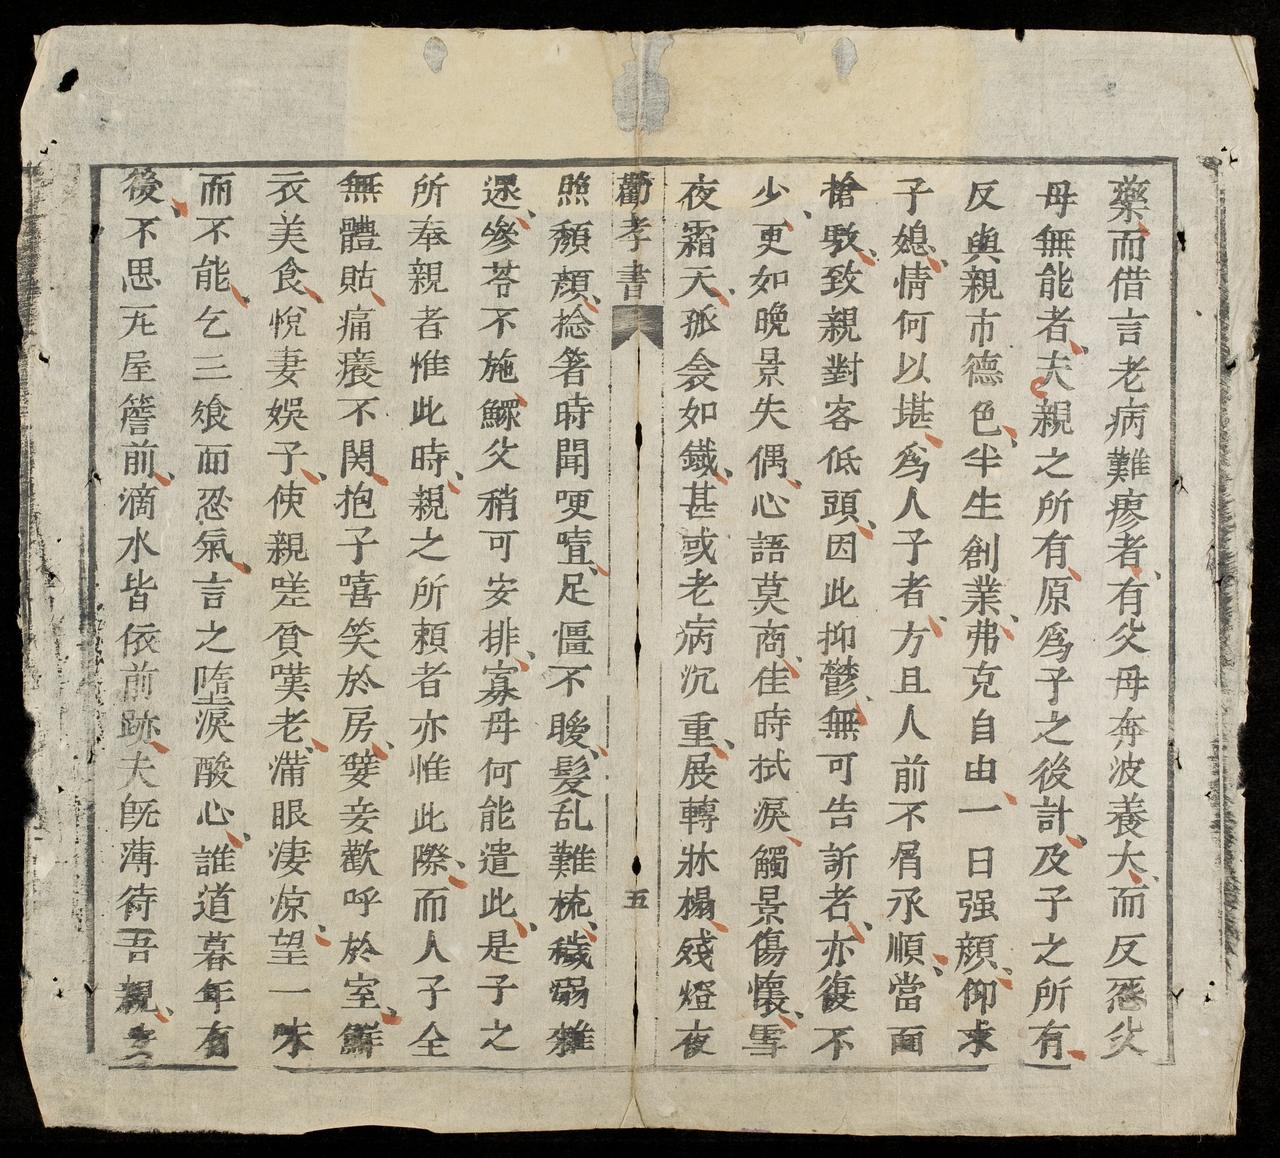 藥而借言老病難瘳者有父母奔波養大而反怨父
母無能者夫親之所有原爲子之後計及子之所有
反與親市德色半生創業弗克自由一日强顔仰求
子媳情何以堪爲人子者方且人前不屑承順當面
搶駁致親對客低頭因此抑鬱無可告訴者亦復不
少更如晚景失偶心語莫商佳時拭淚觸景傷懷雪
夜霜天孤衾如鐵甚或老病沉重展轉牀榻殘燈夜
勸孝書
五
照頽顔捻箸時聞哽噎足僵不暖髮乱難梳穢溺雜
還參苓不施鰥父稍可安排寡母何能遣此是子之
所奉親者惟此時親之所頼者亦惟此際而人子全
無體貼痛癢不関抱子嘻笑於房孌妾歡呼於室鮮
衣美食悅妻娛子使親嗟貧嘆老滿眼凄凉望一味
而不能乞三飧而忍氣言之墮淚酸心誰道暮年有
後不思瓦屋簷前滴水皆依前跡夫旣薄待吾親